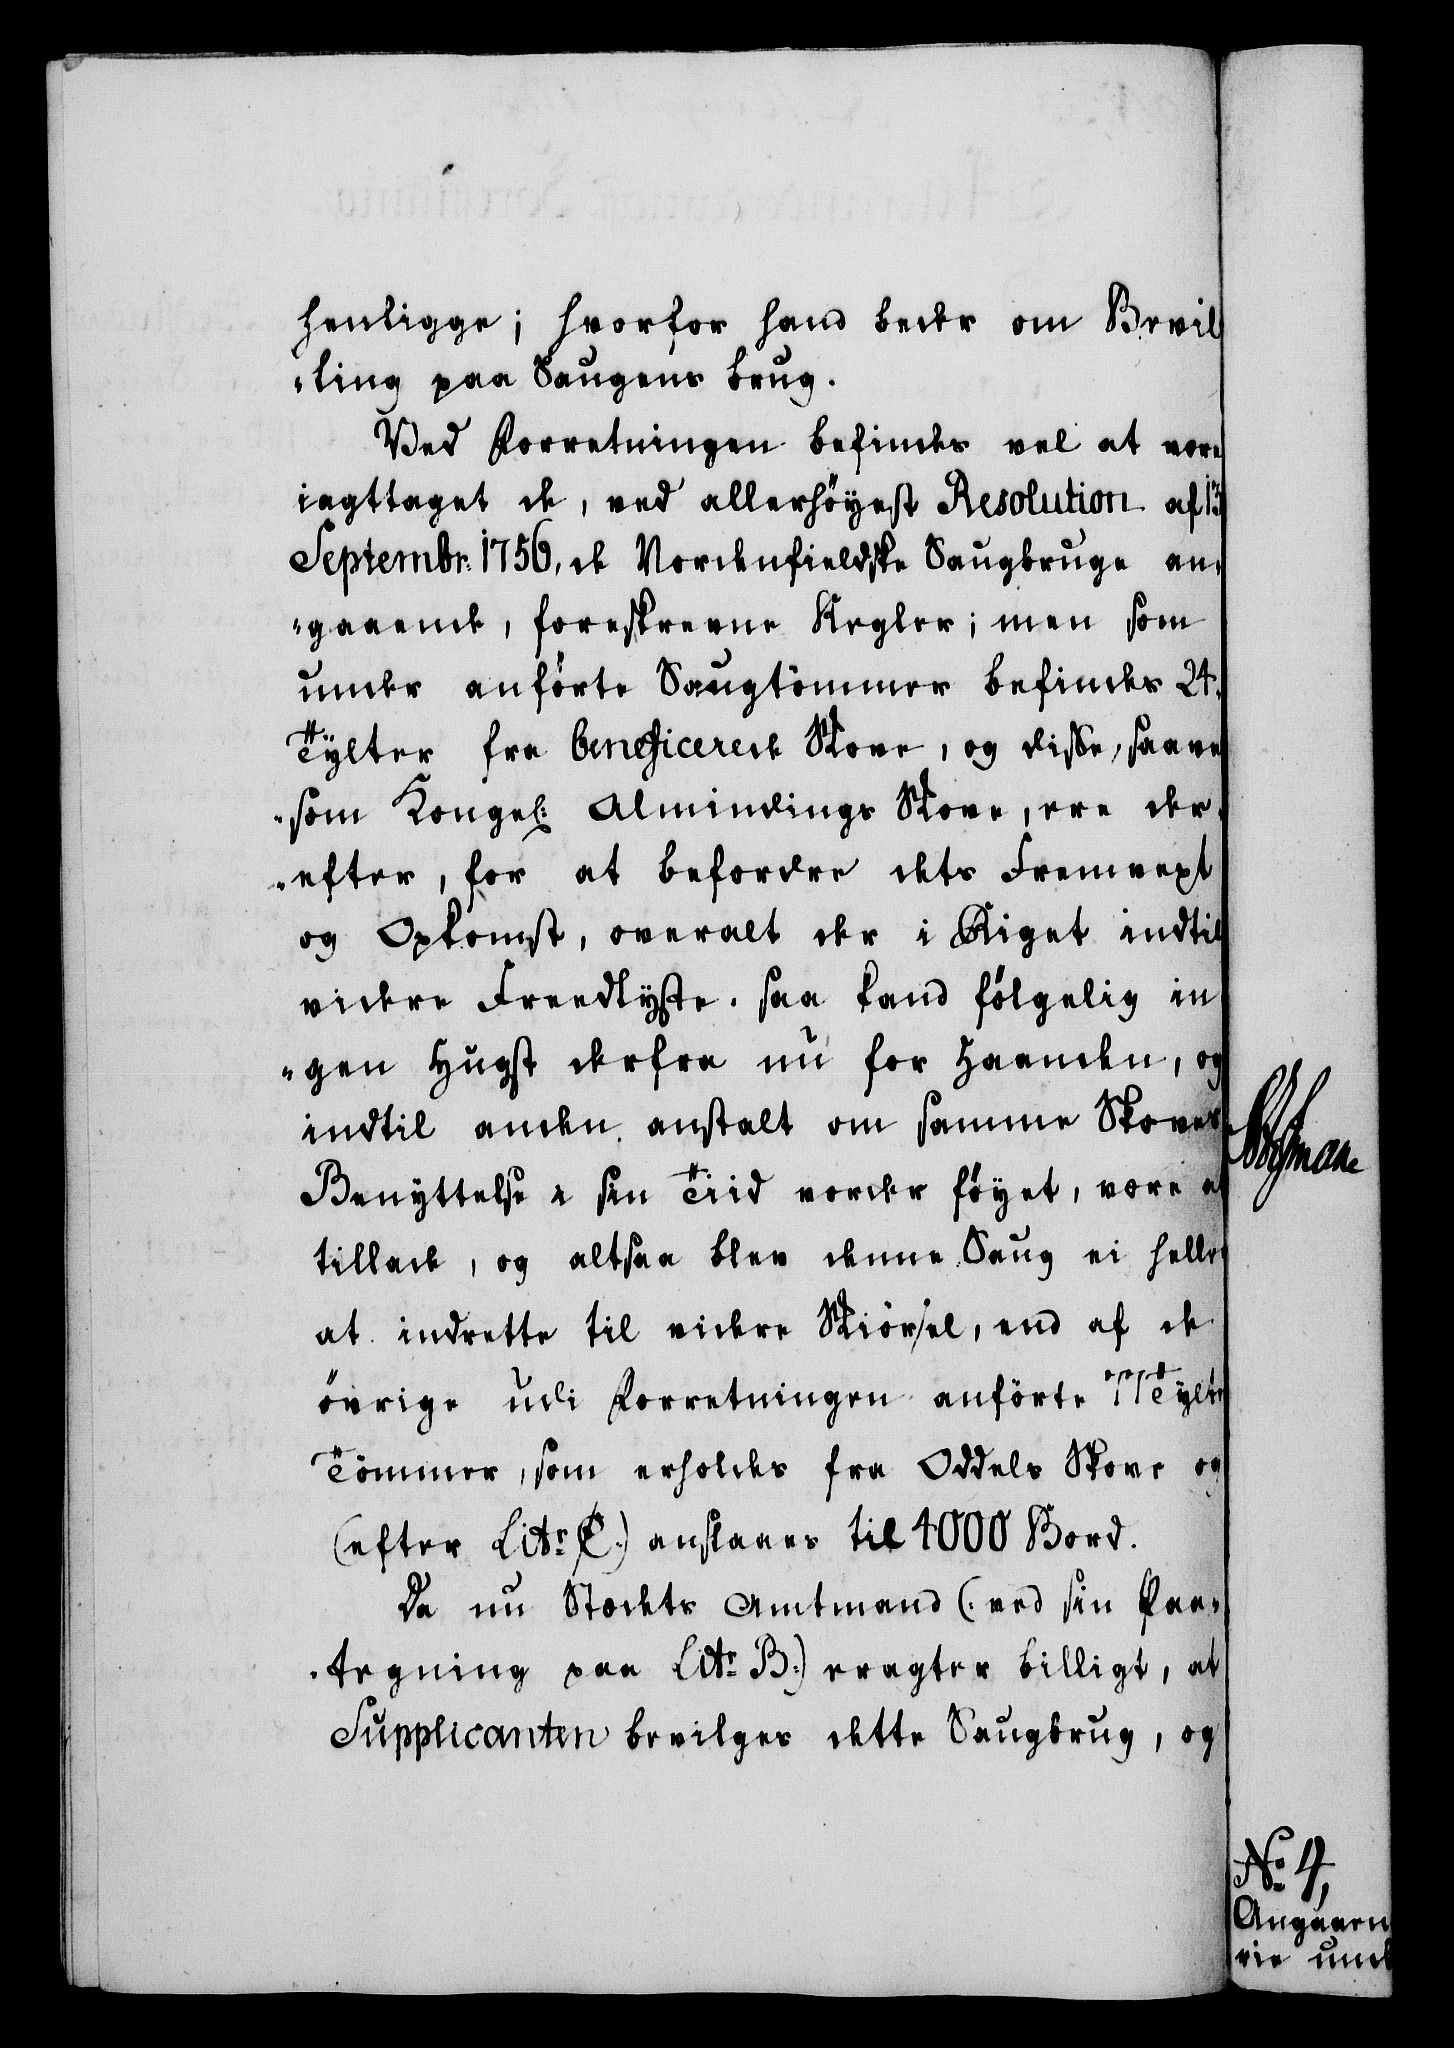 henligge; hvorfor hand beder om Bevil
"ling paa Saugens brug.
Ved Forretningen befindes vel at være
iagttaget de, ved allerhöyest Resolution af 13
Septembr: 1756, de Nordenfieldske Saugbruge an-
"gaaende, foreskrevne Regler; men som
under anförte Saugtömmer befindes 24.
Tylter fra beneficerede Skove, og disse, saave
"som Kongel: Almindings Skove, ere der-
"efter, for at befordre dets Fremvext
og Opkomst, overalt der i Riget indtil
videre Freedlyste. saa kand fölgelig in
"gen Hugst derfra nu for Haanden, og
indtil anden anstalt om samme Skoves
Benyttelse i sin Tiid vorder föyet, være at
tillade, og altsaa blev denne Saug ei heller
at indrette til videre Skiörsel, end af de
övrige udi Forretningen anförte 77 Tylte
Tömmer, som erholdes fra Oddels Skove og
(efter Litr: C.) anslaaes til 4000 Bord.
Da nu Stædets Amtmand (: ved sin Paa-
"tegning paa Litr: B:) eragter billigt, at
Supplicanten bevilges dette Saugbrug, og
No: 4,
Angaaen
vie und